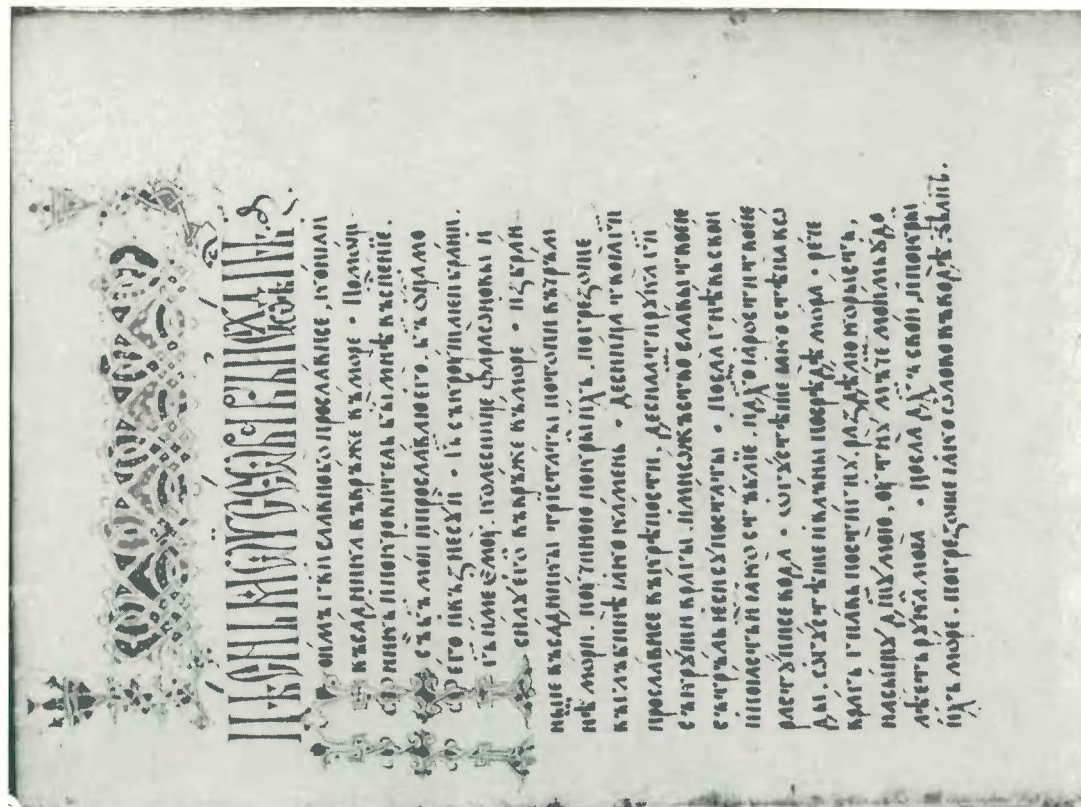 ПѢСНЬ МѠѴСЕѠВ
оимъ г҃ви славно бо прослависе, конꙗ и
въсадника въвръже въ море · Помощ
никъ и покровитель быⷭ мнѣ въ сп҃сение.
съ бъ҃ мои и прославлю его, бъ҃ оц҃а мо
его и възнесꙋ и · Гь҃ съкрꙋшаѥи брани.
гь҃ име ѥмоу. колесницѥ фараѡновы и
силꙋ его въвръже въ море · избран
ныѥ въсадникы тристаты потопи въ чръм
нѣ мори. поучиною покры ихъ. погрезоше
въ глъбинѣ ꙗко камень · десница твоꙗ г҃и
прослависе въ крѣпости, деснаа ти рꙋка г҃и
съкрꙋши врагы. и множьство славы твоѥ
сътрълъ ѥси сꙋпостаты · посла гнѣвь свои
и поꙗсть и ꙗко стъблїе. и дх҃ѡ ꙗрости твоѥ
растꙋписе вода · ѡгꙋстѣше ꙗко стѣна во
ды. ѡгꙋстѣше и влъны посрѣдѣ мора · рече
врагь гнавь постигнꙋ раздѣлю корысть,
насыщꙋ дш҃ꙋ мою, оубию мьчемь моимь ѡдо
лѣеть рꙋка моꙗ · посла дх҃ъ свои, и покры
ихъ море. погрезоше ꙗко ѡлово въ водѣ ѕѣлнѣ.